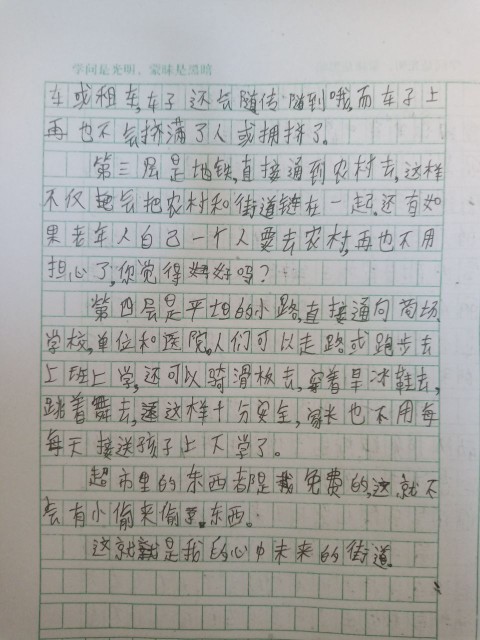 学问是光明，蒙昧是黑暗
车或租车,车子还会随传随到哦,而车子上
再也不会挤满了人或拥挤了。
第三层是地铁,直接通到农村去,这样
不仅能会把农村和街道链在一起,还有如
果老年人自己一个人要去农村,再也不用
担心了,你觉得好吗？
第四层是平坦的小路,直接通向商场,
学校,单位和医院,人们可以走路或跑步去
上班上学,还可以骑滑板去,穿着旱冰鞋去,
跳着舞去,这样十分安全,家长也不用每
每天接送孩子上下学了。
超市里的东西都是免费的,这就不
会有小偷来偷东西。
这就是我的心中未来的街道。